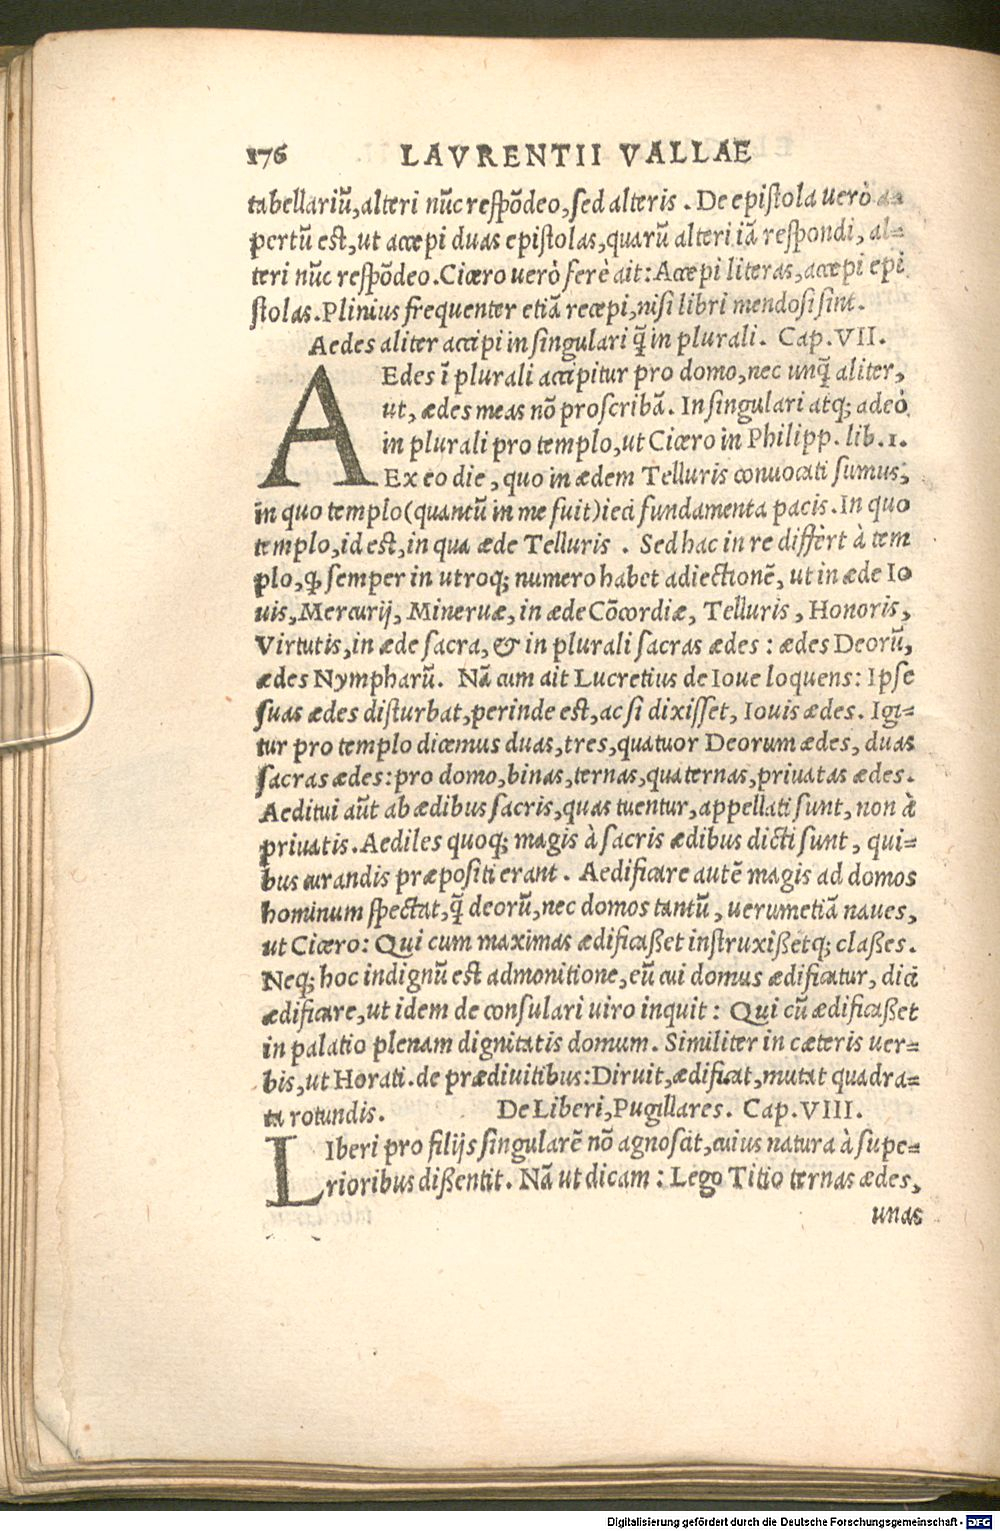 176 LAVRENTII VALLAE
tabellariũ, alteri nũc respõdeo, sed alteris . De epistola uerò a-
pertũ est, ut accepi duas epistolas, quarũ alteri iã respondi, al-
teri nũc respõdeo. Cicero uerò ferè ait: Accepi literas, accepi epi
stolas. Plinius frequenter etiã recepi, nisi libri mendosi sint.
Aedes aliter accipi in singulari q̃ in plurali. Cap. VII.
AEdes ĩ plurali accipitur pro domo, nec unq̃ aliter,
ut, ædes meas nõ proscribã. In singulari atq; adeò
in plurali pro templo, ut Cicero in Philipp. lib. 1.
Ex eo die, quo in ædem Telluris conuocati sumus,
in quo templo (quantũ in me fuit) ieci fundamenta pacis. In quo
templo, id est, in qua æde Telluris . Sed hac in re differt à tem
plo, ꝙ semper in utroq; numero habet adiectionẽ, ut in æde Io
uis, Mercurij, Mineruæ, in æde Cõcordiæ, Telluris, Honoris,
Virtutis, in æde sacra, & in plurali sacras ædes : ædes Deorũ,
ædes Nympharũ. Nã cum ait Lucretius de Ioue loquens: Ipse
suas ædes disturbat, perinde est, ac si dixisset, Iouis ædes. Igi-
tur pro templo dicemus duas, tres, quatuor Deorum ædes, duas
sacras ædes: pro domo, binas, ternas, quaternas, priuatas ædes.
Aeditui aũt ab ædibus sacris, quas tuentur, appellati sunt, non à
priuatis. Aediles quoq; magis à sacris ædibus dicti sunt, qui-
bus curandis præpositi erant. Aedificare autẽ magis ad domos
hominum spectat, q̃ deorũ, nec domos tantũ, uerumetiã naues,
ut Cicero: Qui cum maximas ædificaßet instruxißetq; claßes.
Neq; hoc indignũ est admonitione, eũ cui domus ædificatur, dici
ædificare, ut idem de consulari uiro inquit : Qui cũ ædificaßet
in palatio plenam dignitatis domum. Similiter in cæteris uer-
bis, ut Horati. de prædiuitibus: Diruit, ædificat, mutat quadra-
ta rotundis. De Liberi, Pugillares. Cap. VIII.
LIberi pro filijs singularẽ nõ agnoscit, cuius natura à supe-
rioribus dißentit. Nã ut dicam : Lego Titio ternas ædes,
unas
Digitalisierung gefördert durch die Deutsche Forschungsgemeinschaft - DFG